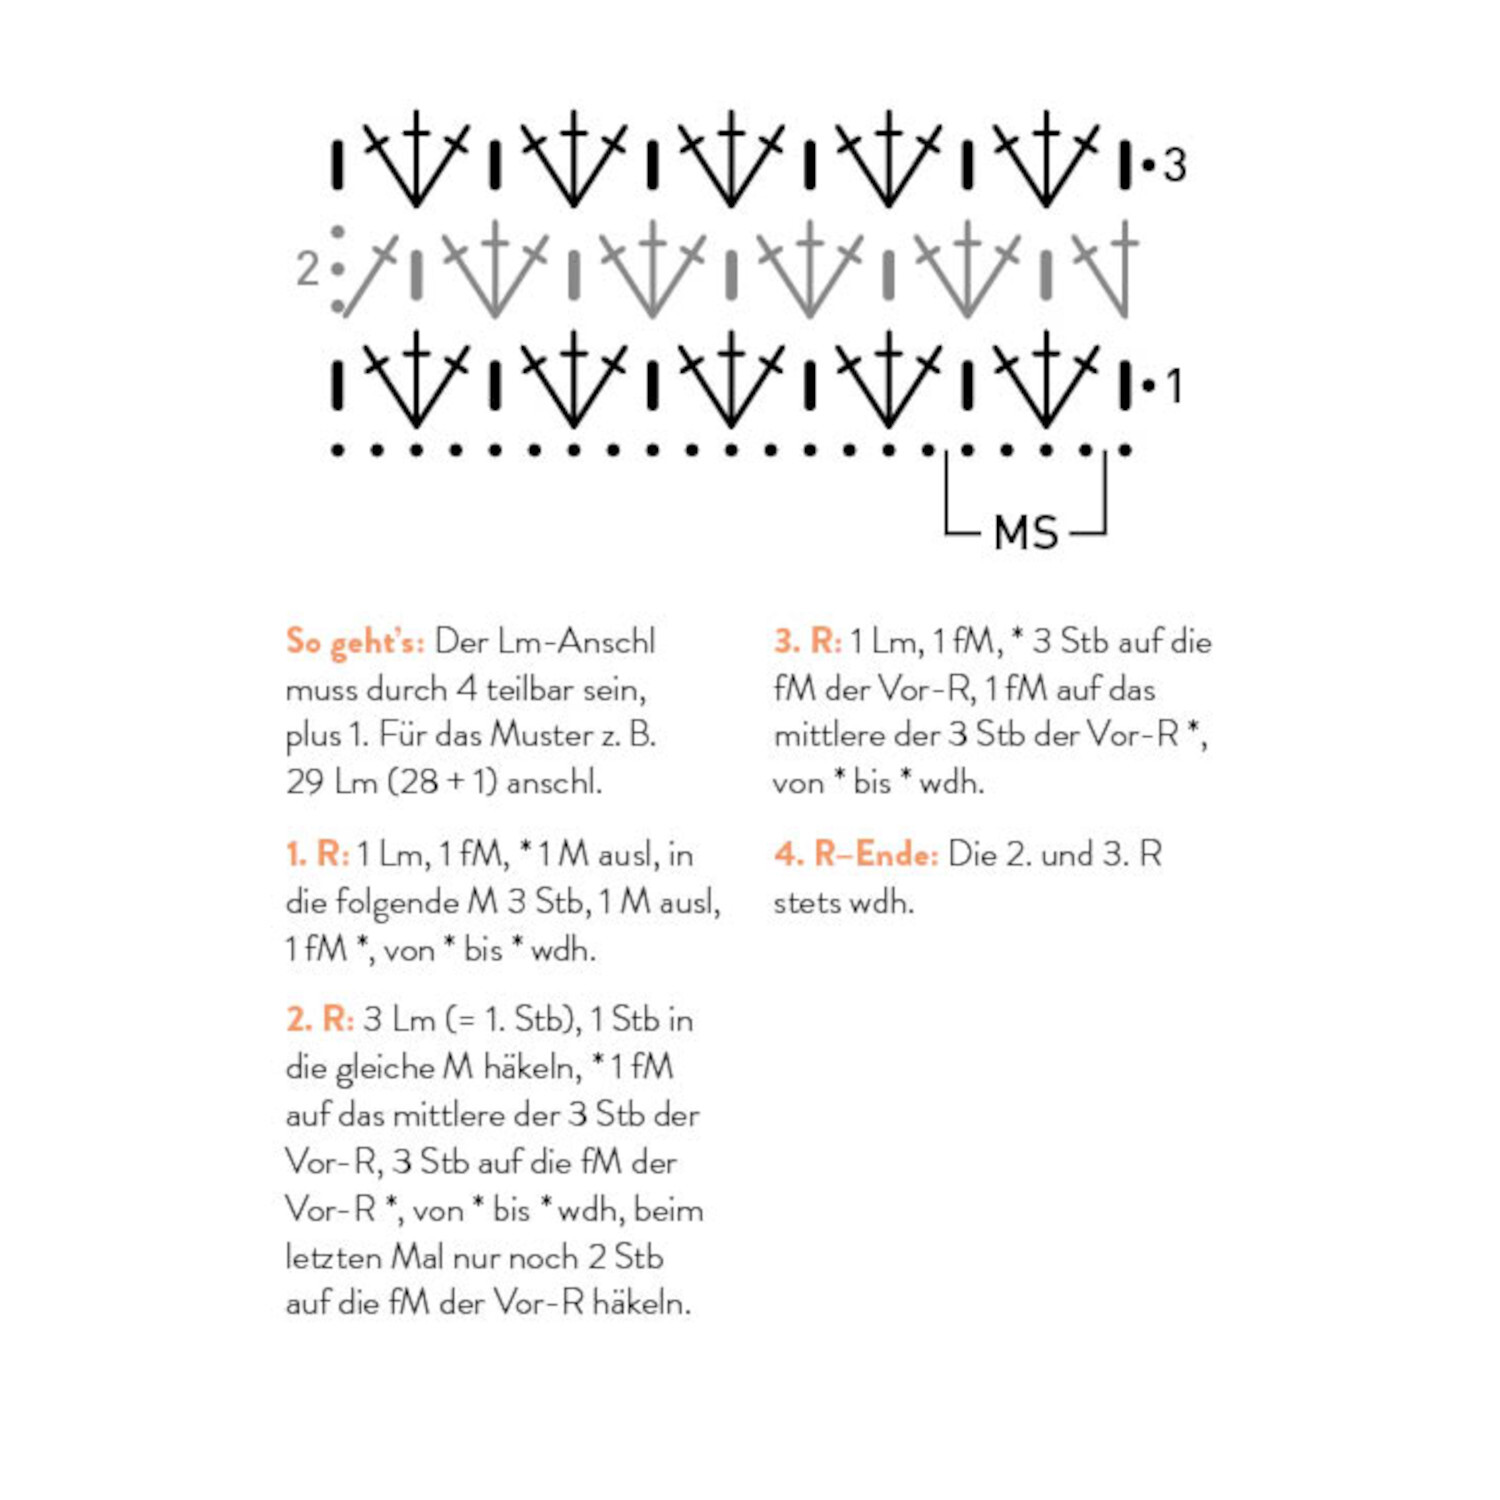 3
2
1
MS
So geht's: Der Lm-Anschl
muss durch 4 teilbar sein,
plus 1. Für das Muster z. B.
29 Lm (28 + 1) anschl.
1. R: 1 Lm, 1 fM, * 1 M ausl, in
die folgende M 3 Stb, 1 M ausl,
1 fM *, von * bis * wdh.
2. R: 3 Lm (= 1. Stb), 1 Stb in
die gleiche M häkeln, * 1 fM
auf das mittlere der 3 Stb der
Vor-R, 3 Stb auf die fM der
Vor-R *, von * bis * wdh, beim
letzten Mal nur noch 2 Stb
auf die fM der Vor-R häkeln.
3. R: 1 Lm, 1 fM, * 3 Stb auf die
fM der Vor-R, 1 fM auf das
mittlere der 3 Stb der Vor-R *,
von * bis * wdh.
4. R–Ende: Die 2. und 3. R
stets wdh.